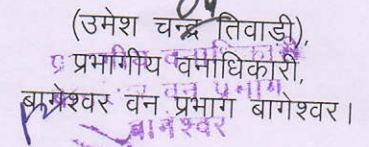 (उमेश चन्द्र तिवाडी),
प्रभागीय वनाधिकारी,
बागेश्वर वन प्रभाग बागेश्वर।
वन प्रभाग
बागेश्वर